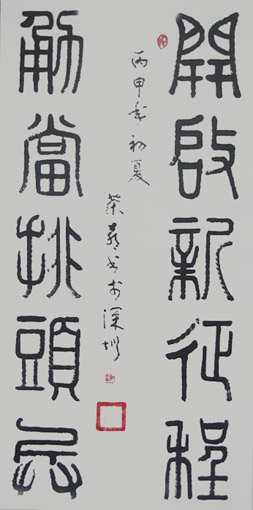 開啟新征程
勇當排頭兵
丙申年初夏
书於深圳